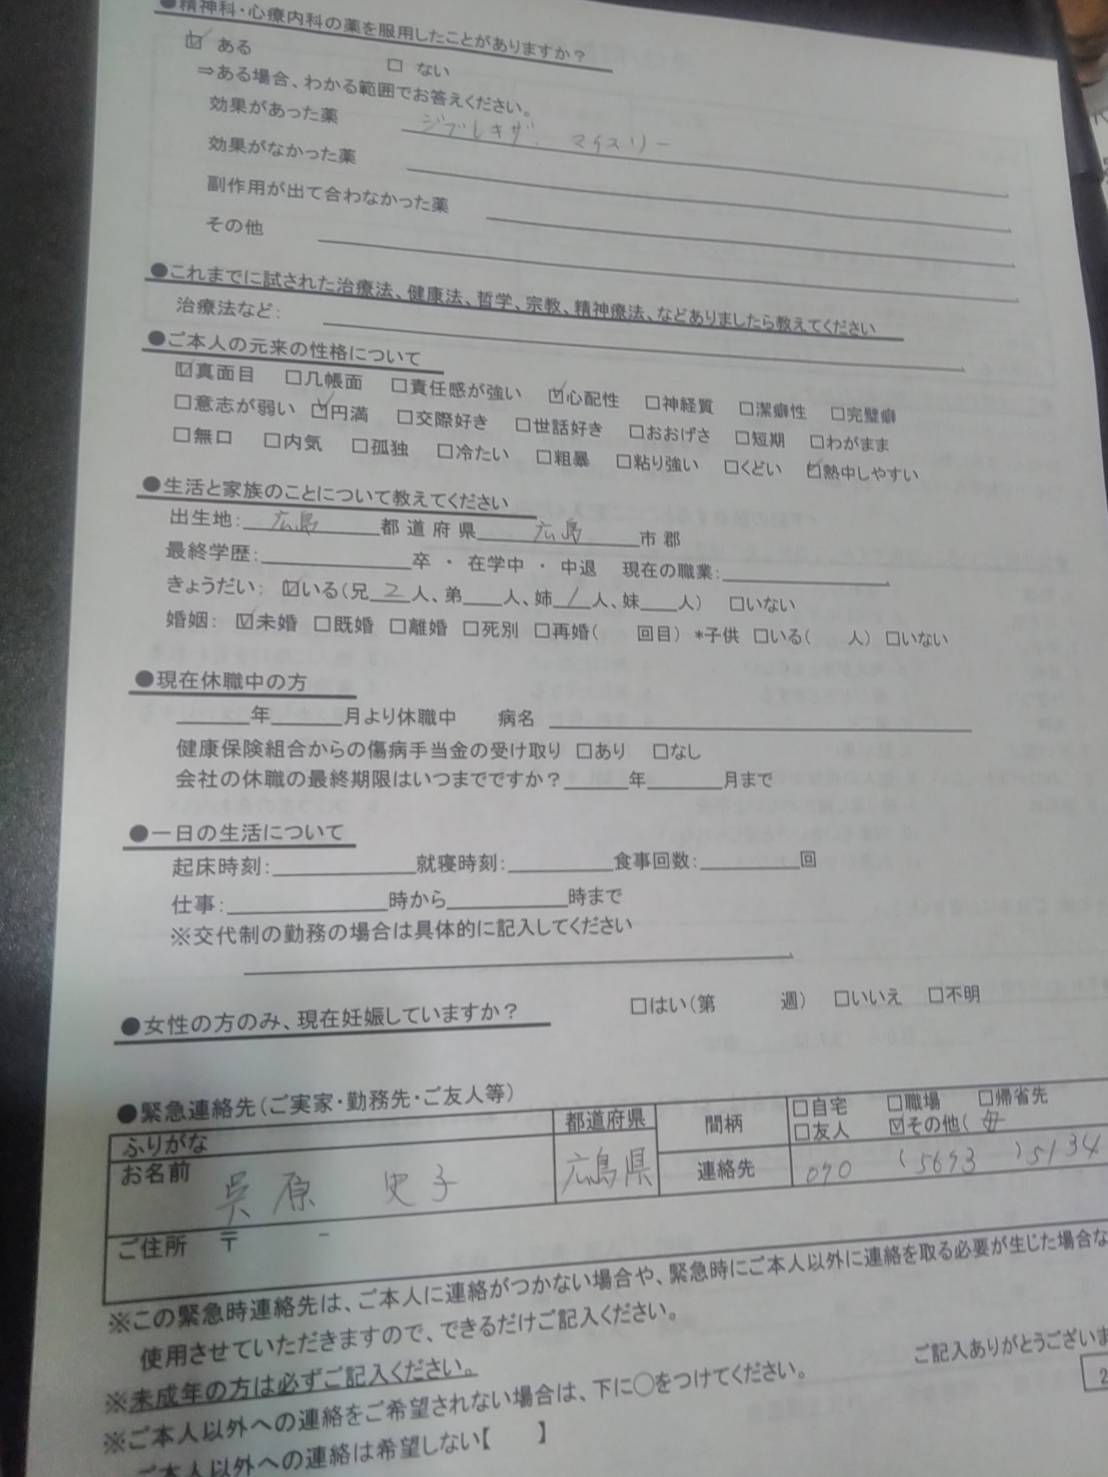 ●精神科・心療内科の薬を服用したことがありますか？
☑ ある　□ ない
⇒ある場合、わかる範囲でお答えください。
効果があった薬　ジプレキサ、マイスリー
効果がなかった薬
副作用が出て合わなかった薬
その他
●これまでに試された治療法、健康法、哲学、宗教、精神療法、などありましたら教えてください
治療法など：
●ご本人の元来の性格について
☑真面目　□几帳面　□責任感が強い　☑心配性　□神経質　□潔癖性　□完璧癖
□意志が弱い　☑円満　□交際好き　□世話好き　□おおげさ　□短期　□わがまま
□無口　□内気　□孤独　□冷たい　□粗暴　□粘り強い　□くどい　☑熱中しやすい
●生活と家族のことについて教えてください
出生地：広島 都道府県 広島 市郡
最終学歴：　卒 ・ 在学中 ・ 中退　現在の職業：
きょうだい：　☑いる（兄 2 人、弟　人、姉 1 人、妹　人）　□いない
婚姻：　☑未婚　□既婚　□離婚　□死別　□再婚（　回目）　*子供　□いる（　人）　□いない
●現在休職中の方
年　月より休職中　病名
健康保険組合からの傷病手当金の受け取り　□あり　□なし
会社の休職の最終期限はいつまでですか？　年　月まで
●一日の生活について
起床時刻：　就寝時刻：　食事回数：　回
仕事：　時から　時まで
※交代制の勤務の場合は具体的に記入してください
●女性の方のみ、現在妊娠していますか？　□はい（第　週）　□いいえ　□不明
●緊急連絡先（ご実家・勤務先・ご友人等）
ふりがな　都道府県　間柄　□自宅　□職場　□帰省先
□友人　☑その他（ 母
お名前　呉原　史子　広島県　連絡先　070（5693）5134
ご住所　〒　-
※この緊急時連絡先は、ご本人に連絡がつかない場合や、緊急時にご本人以外に連絡を取る必要が生じた場合な
使用させていただきますので、できるだけご記入ください。
※未成年の方は必ずご記入ください。
※ご本人以外への連絡をご希望されない場合は、下に○をつけてください。
ご記入ありがとうございま
2
ご本人以外への連絡は希望しない【　】